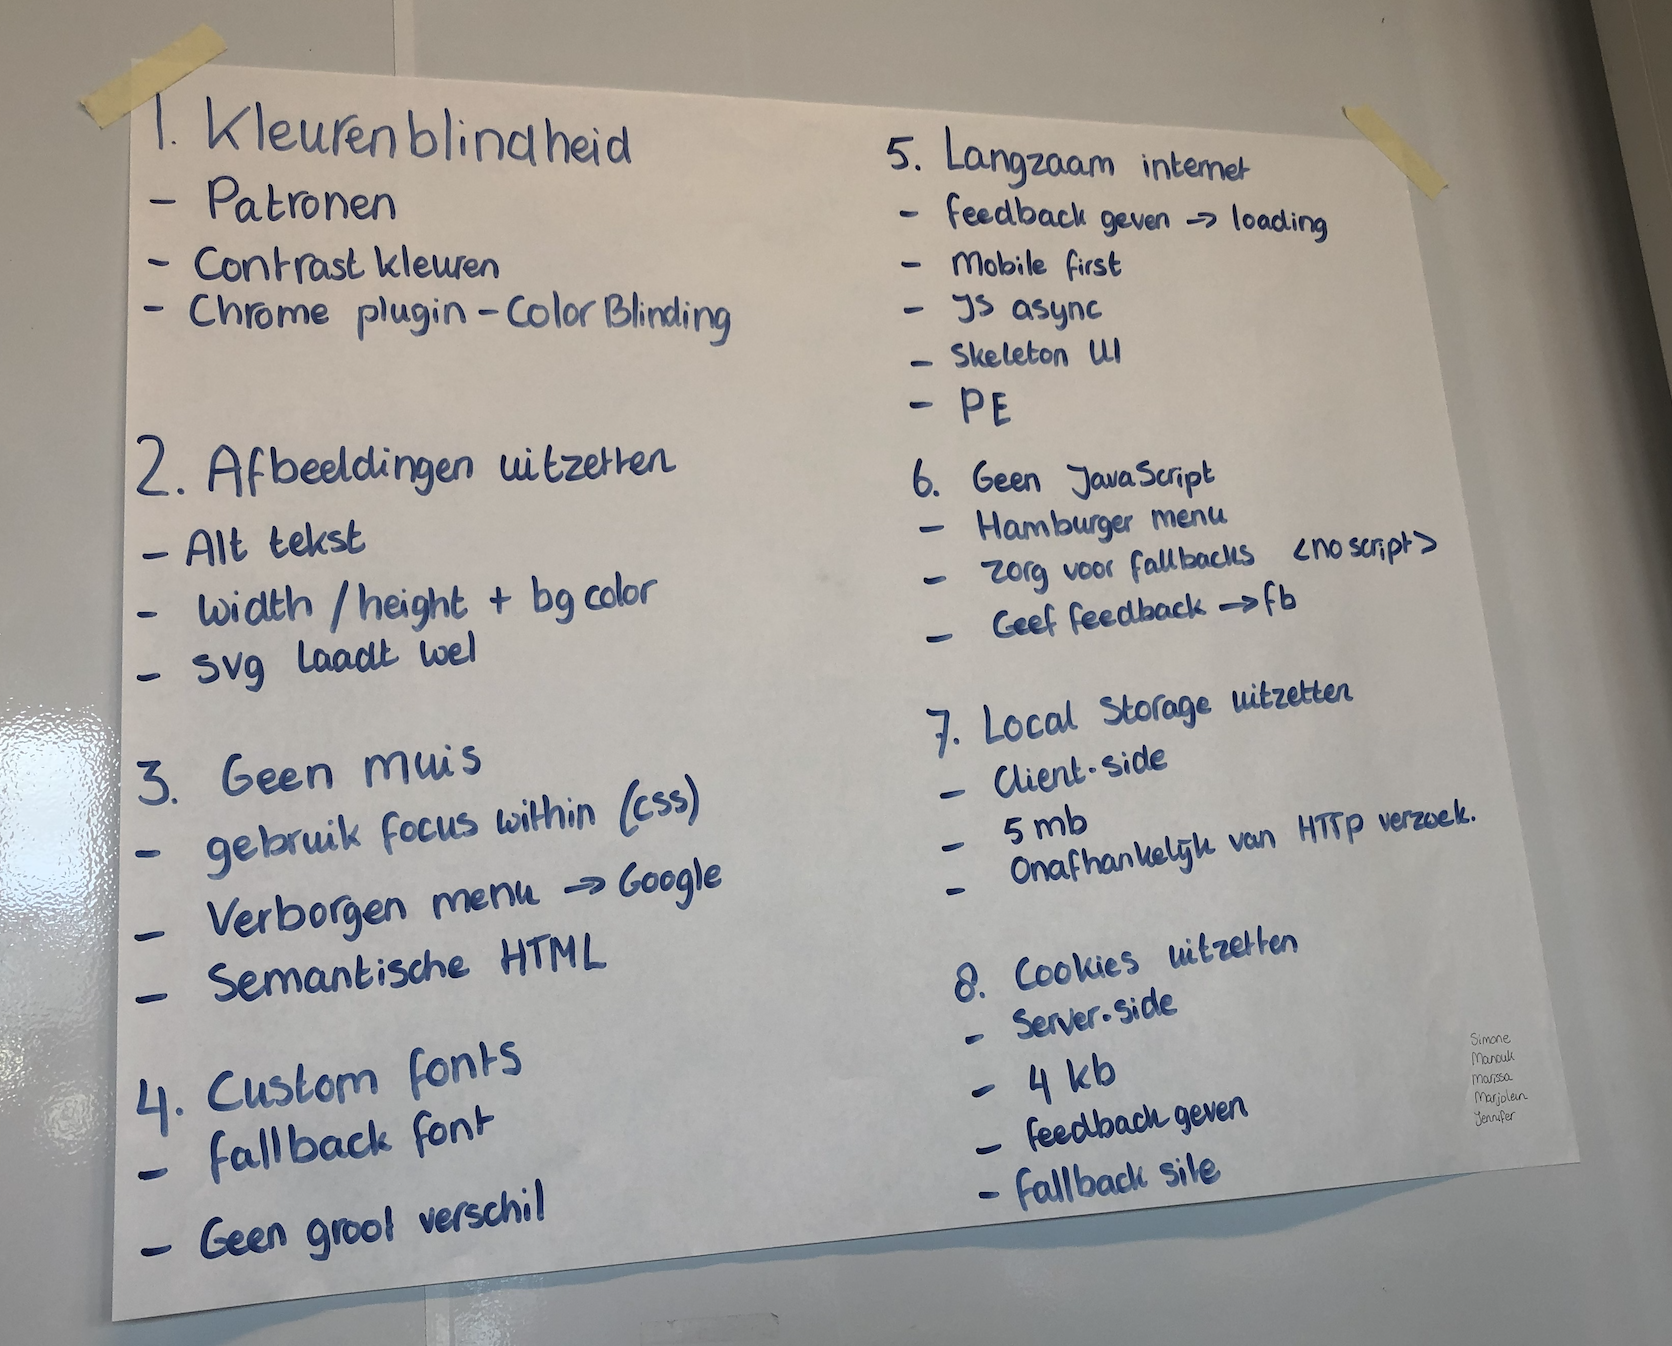 1. Kleurenblindheid
- Patronen
- Contrast kleuren
- Chrome plugin - Color Blinding
2. Afbeeldingen uitzetten
- Alt tekst
- width / height + bg color
- svg laadt wel
3. Geen muis
- gebruik focus within (css)
- Verborgen menu -> Google
- Semantische HTML
4. Custom fonts
- fallback font
- Geen groot verschil
5. Langzaam internet
- feedback geven -> loading
- Mobile first
- JS async
- Skeleton UI
- PE
6. Geen JavaScript
- Hamburger menu
- Zorg voor fallbacks <noscript>
- Geef feedback -> fb
7. Local Storage uitzetten
- Client-side
- 5 mb
- Onafhankelijk van HTTP verzoek.
8. Cookies uitzetten
- Server-side
- 4 kb
- feedback geven
- fallback site
Simone
Manouk
Marissa
Marjolein
Jennifer